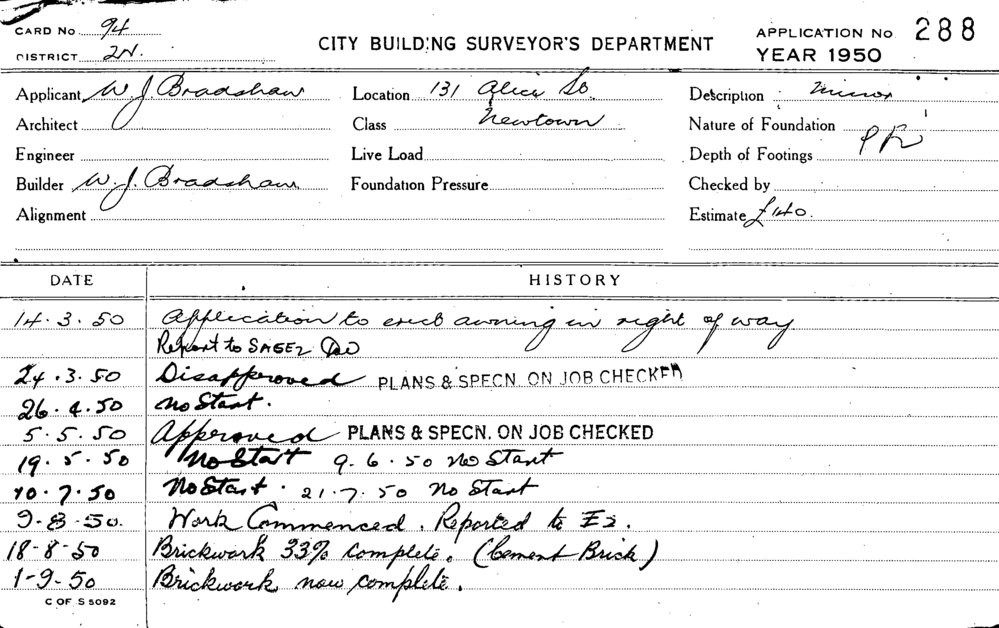 CARD No 94
DISTRICT 2N.
CITY BUILDING SURVEYOR'S DEPARTMENT
APPLICATION No 288
YEAR 1950
Applicant W J Bradshaw Location 131 Alice St. Description minor
Architect Class Newtown Nature of Foundation
Engineer Live Load Depth of Footings
Builder W. J. Bradshaw Foundation Pressure Checked by
Alignment Estimate £140.
DATE HISTORY
14.3.50 Application to erect awning in right of way
Report to
24.3.50 Disapproved PLANS & SPECN. ON JOB CHECKED
26.4.50 No Start.
5.5.50 Approved PLANS & SPECN. ON JOB CHECKED
19.5.50 No Start 9.6.50 No Start
10.7.50 No Start. 21.7.50 No Start
9-8-50. Work Commenced. Reported to E2.
18-8-50 Brickwork 33% complete. (Cement Brick)
1-9-50 Brickwork now complete.
C OF S 5092